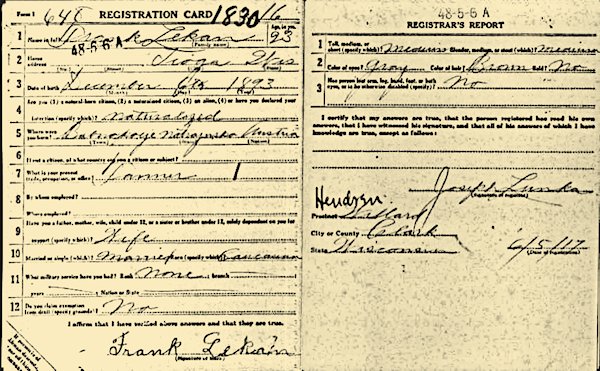 Form 1 648 REGISTRATION CARD 1830 16
1 Name in full Frank Lekan Age, in yrs. 23
(Family name)
48-5-6 A
2 Home address Tioga Wis
3 Date of birth December 6th 1893
Are you (1) a natural-born citizen, (2) a naturalized citizen, (3) an alien, (4) or have you declared your
4 intention (specify which)? Naturalized
5 Where were you born? Austria
(Town) (State) (Nation)
6 If not a citizen, of what country are you a citizen or subject?
7 What is your present trade, occupation, or office? Farmer
8 By whom employed?
Where employed?
9 Have you a father, mother, wife, child under 12, or a sister or brother under 12, solely dependent on you for
support (specify which)? Wife
10 Married or single (which)? Married Race (specify which)? Caucasian
11 What military service have you had? Rank None ; branch
years ; Nation or State
12 Do you claim exemption from draft (specify grounds)? No
I affirm that I have verified above answers and that they are true.
Frank Lekan
(Signature or mark)
48-5-6 A
REGISTRAR'S REPORT
1 Tall, medium, or short (which)? Medium Slender, medium, or stout (which)? Medium
2 Color of eyes? Gray Color of hair? Brown Bald? No
3 Has person lost arm, leg, hand, foot, or both eyes, or is he otherwise disabled (specify)? No
I certify that my answers are true, that the person registered has read his own
answers, that I have witnessed his signature, and that all of his answers of which I have
knowledge are true, except as follows:
Joseph Lunka
(Signature of registrar)
Hendren
Precinct
City or County Clark
State Wisconsin 6/5/17
(Date of registration)